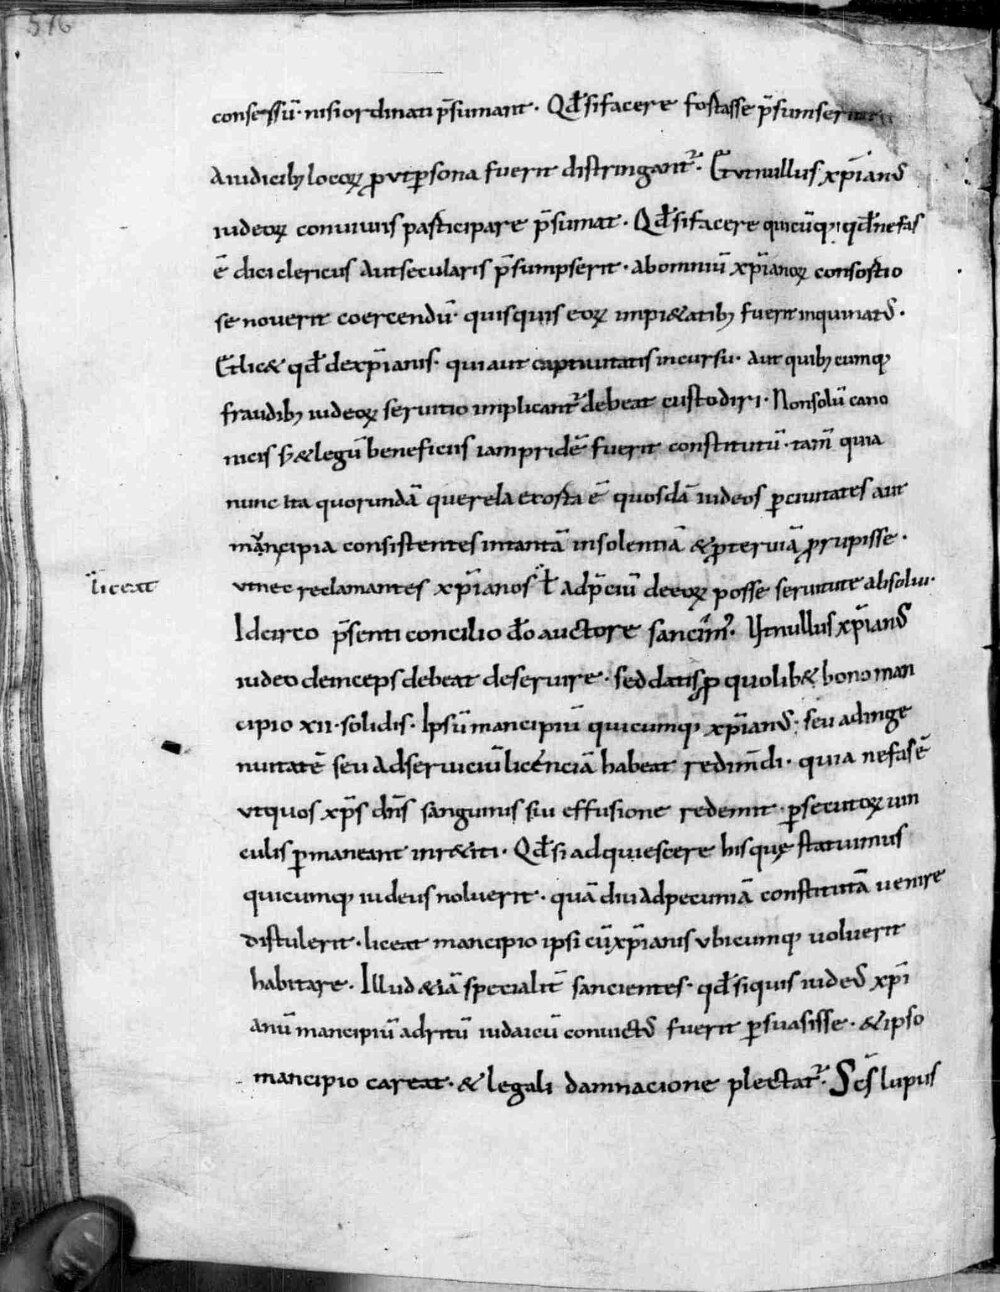 516
consessū· nisi ordinati p̄sumant· Qđ si facere fortasse p̄sumserint
A iudicib; locoꝝ ꝓ ut ꝑsona fuerit distringant᷑· Et ut nullus xp̄ianꝰ
iudeoꝝ conuiuiis participare p̄sumat· Qđ si facere quicūq; qđ nefas
ē dici clericus aut secularis p̄sumpserit· ab omniū xp̄ianoꝝ consortio
se nouerit coercendū· quisquis eoꝝ impi&atib; fuerit inquinatꝰ·
Et lic& qđ de xp̄ianis· qui aut captiuitatis incursu· aut quib; cumq;
fraudib; iudeoꝝ seruitio implicant᷑ debeat custodiri· Non solū cano
nicis s; & legū beneficiis iam pridē fuerit constitutū· tam̄ quia
nunc ita quorundā querela exorta ē quosdā iudeos ꝑ ciuitates aut
mancipia consistentes in tantā insolentiā & ꝓteruiā ꝓrupisse·
liceat
ut nec reclamantes xp̄ianos ł ad p̄ciū de eoꝝ posse seruitute absolui·
Idcirco p̄senti concilio dō auctore sancim᷒· Ut nullus xp̄ianꝰ
iudeo deinceps debeat deseruire· sed datis ꝓ quolib& bono man
cipio xii· solidis· Ipsū mancipiū quicumq; xp̄ianꝰ· seu ad inge
nuitatē seu ad seruiciū licenciā habeat redimdi· quia nefas ē
ut quos xp̄s dn̄s sanguinis sui effusione redemit· ꝑsecutoꝝ uin
culis ꝑmaneant inr&iti· Qđ si adquiescere his quę statuimus
quicumq; iudeus noluerit· quā diu ad pecuniā constitutā uenire
distulerit· liceat mancipio ipsi cū xp̄ianis ubicumq; uoluerit
habitare· Illud &iā specialit̄ sancientes· qđ si quis iudeꝰ xp̄i
anū mancipiū ad ritū iudaicū conuictꝰ fuerit ꝑsuasisse· & ipso
mancipio careat· & legali damnacione plectat᷑· Sc̄s lupus